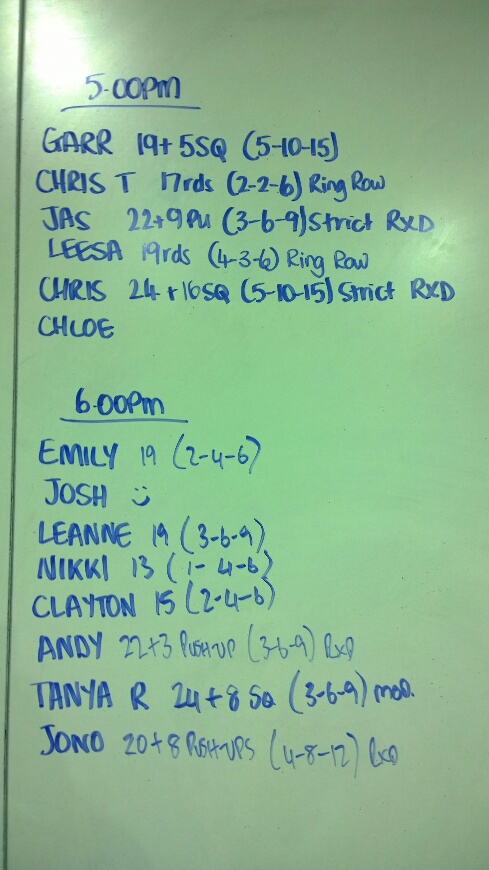 5.00pm
GARR 19+5SQ (5-10-15)
CHRIS T 17rds (2-2-6) Ring Row
JAS 22+9PU (3-6-9) Strict RXD
LEESA 19rds (4-3-6) Ring Row
CHRIS 24+16SQ (5-10-15) Strict RXD
CHLOE
6.00pm
EMILY 19 (2-4-6)
JOSH
LEANNE 19 (3-6-9)
NIKKI 13 (1-4-6)
CLAYTON 15 (2-4-6)
ANDY 22+3 PUSH-UP (3-6-9) RXD
TANYA R 24+8 SQ (3-6-9) MOD.
JONO 20+8 PUSH-UPS (4-8-12) RXD